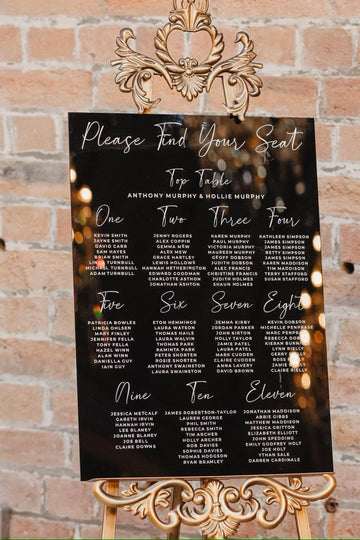 Please Find Your Seat
Top Table
ANTHONY MURPHY & HOLLIE MURPHY
One
KEVIN SMITH
JAYNE SMITH
DAVID CARR
SAM HAYES
BRIAN SMITH
LINDA TURNBULL
MICHAEL TURNBULL
ADAM TURNBULL
Two
JENNY ROGERS
ALEX COPPIN
GEMMA MEW
ALEX MEW
GRACE HARTLEY
LEWIS HOLLOWS
HANNAH HETHERINGTON
EDWARD GOODMAN
CHARLOTTE ASHTON
JONATHAN ASHTON
Three
KAREN MURPHY
PAUL MURPHY
VICTORIA MURPHY
MAUREEN MURPHY
GEOFF DOBSON
JUDITH DOBSON
ALEC FRANCIS
CHRISTINE FRANCIS
JUDITH HOLMES
SHAUN HOLMES
Four
KATHLEEN SIMPSON
JAMES SIMPSON
JAMES SIMPSON
BETTY SIMPSON
JAMES SIMPSON
KAREN MADDISON
TIM MADDISON
TERRY STAFFORD
SUSAN STAFFORD
Five
PATRICIA BOWLES
LINDA OHLSEN
MARY FINLEY
JENNIFER FELLA
TONY FELLA
HAZEL WINN
ALAN WINN
DANIELLA GUY
IAIN GUY
Six
ETON HEMMINGS
LAURA WATSON
THOMAS HAILE
LAURA WALVIN
THOMAS PARK
RAMINTA PARK
PETER SHORTEN
ROSIE SHORTEN
ANTHONY SWAINSTON
LAURA SWAINSTON
Seven
SEMMA KIRBY
JORDAN PARKER
JOHN KIRTON
HOLLY TAYLOR
JAMIE PATEL
LAURA PATEL
MARK CUDDEN
CLAIRE CUDDEN
ANNA LAVERY
DAVID BROWN
Eight
KEVIN DOBSON
MICHELLE PENPRASE
MARC PENPRASE
REBECCA
KIERAN
LYNN RIELLY
RIELLY
JAMIE RIELLY
CLAIRE RIELLY
Nine
JESSICA METCALF
GARETH IRVIN
HANNAH IRVIN
LEE BLANEY
JOANNE BLANEY
JOE BELL
CLAIRE DOWNS
Ten
JAMES ROBERTSON-TAYLOR
LAUREN GEORGE
PHIL SMITH
REBECCA SMITH
TIM ARCHER
HOLLY ARCHER
ROB DAVIES
SOPHIE DAVIES
THOMAS HODGSON
RYAN BRAMLEY
Eleven
JONATHAN MADDISON
ABBIE GIBBS
MATTHEW MADDISON
JESSICA GRITTON
ELIZABETH ELLIOTT
JOHN SPEDDING
EMILY GODFREY HOLT
JOE HOLT
YTHAN SALE
DARREN CARDINALE